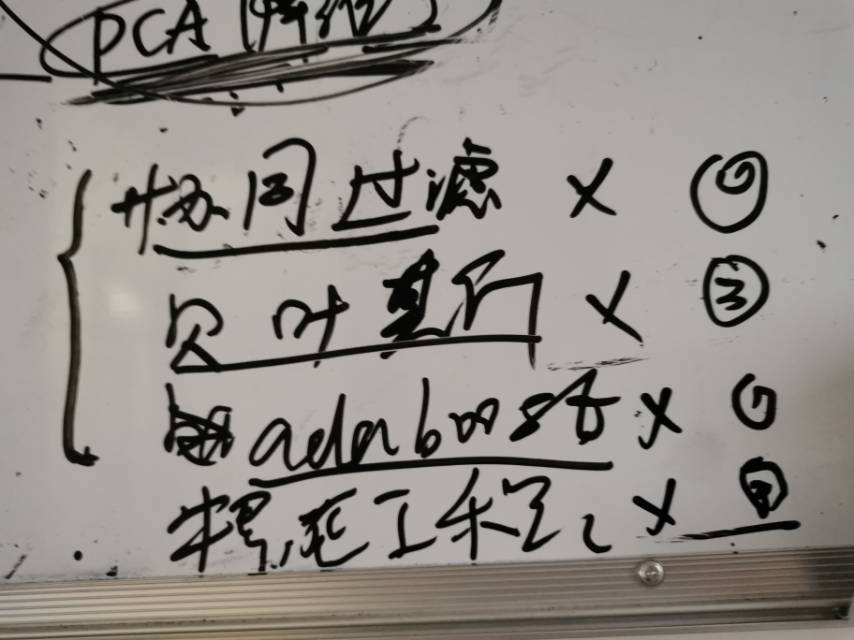 PCA (特征)
协同过滤 ×
贝叶斯 × ③
adaboost ×
特征工程 ×